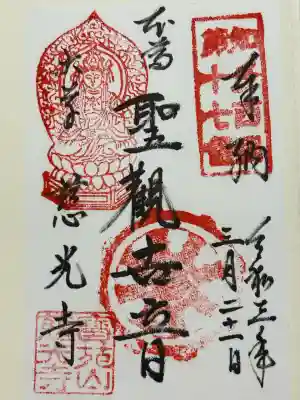 奉納
令和三年
三月二十一日
十七番
本尊
聖觀世音
慈光寺